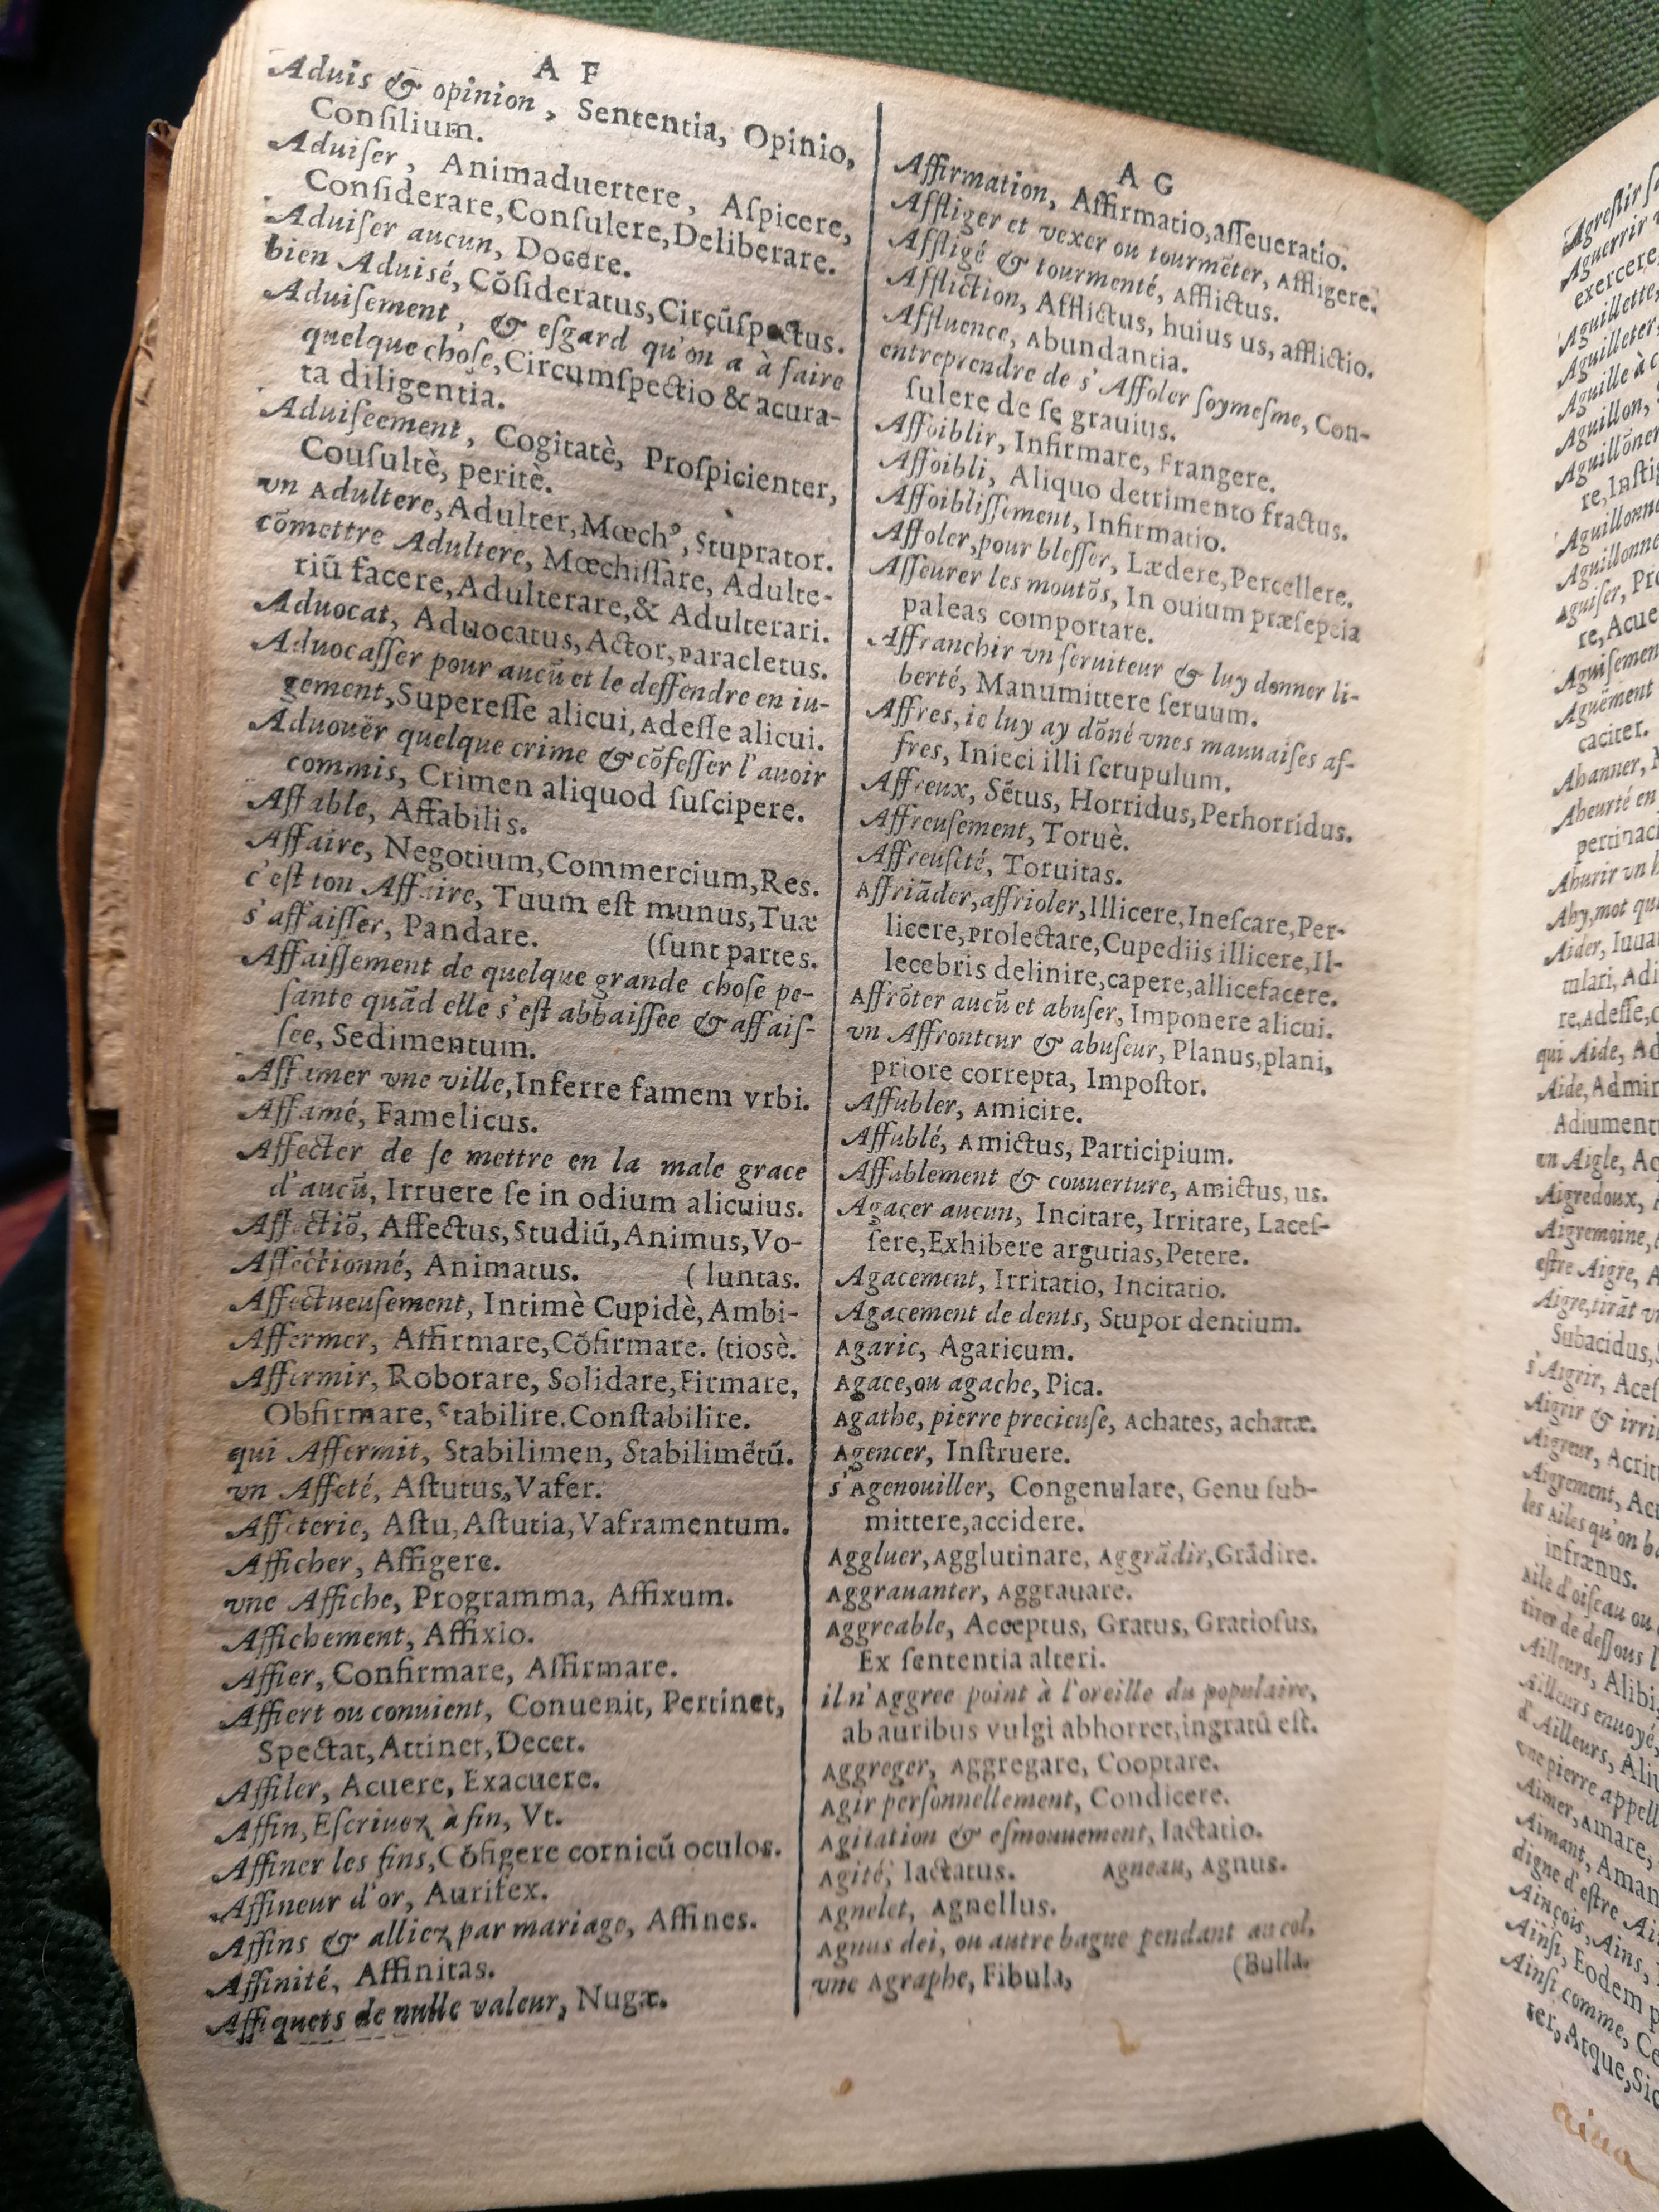 A F
Aduis & opinion, Sententia, Opinio,
Conſilium.
Aduiſer, Animaduertere, Aſpicere,
Conſiderare, Conſulere, Deliberare.
Aduiſer aucun, Docere.
bien Aduisé, Cõſideratus, Circũſpectus.
Aduiſement, & eſgard qu'on a à faire
quelque choſe, Circumſpectio & acura-
ta diligentia.
Aduiſeement, Cogitatè, Proſpicienter,
Couſultè, peritè.
vn Adultere, Adulter, Mœchꝰ, Stuprator.
cõmettre Adultere, Mœchiſſare, Adulte-
riũ facere, Adulterare, & Adulterari.
Aduocat, Aduocatus, Actor, Paracletus.
Aduocaſſer pour aucũ et le deffendre en iu-
gement, Supereſſe alicui, Adeſſe alicui.
Aduouër quelque crime & cõfeſſer l'auoir
commis, Crimen aliquod ſuſcipere.
Affable, Affabilis.
Affaire, Negotium, Commercium, Res.
c'eſt ton Affaire, Tuum eſt munus, Tuæ
s'affaiſſer, Pandare. (ſunt partes.
Affaiſſement de quelque grande choſe pe-
ſante quãd elle s'eſt abbaiſſee & affaiſ-
ſee, Sedimentum.
Affamer vne ville, Inferre famem vrbi.
Affamé, Famelicus.
Affecter de ſe mettre en la male grace
d'aucũ, Irruere ſe in odium alicuius.
Affectiõ, Affectus, Studiũ, Animus, Vo-
Affectionné, Animatus. (luntas.
Affectueuſement, Intimè Cupidè, Ambi-
Affermer, Affirmare, Cõfirmare. (tiosè.
Affermir, Roborare, Solidare, Firmare,
Obfirmare, Stabilire, Conſtabilire.
qui Affermit, Stabilimen, Stabilimẽtũ.
vn Affeté, Aſtutus, Vafer.
Affeterie, Aſtu, Aſtutia, Vaframentum.
Afficher, Affigere.
vne Affiche, Programma, Affixum.
Affichement, Affixio.
Affier, Confirmare, Affirmare.
Affiert ou conuient, Conuenit, Pertinet,
Spectat, Attinet, Decet.
Affiler, Acuere, Exacuere.
Affin, Eſcriuez à fin, Vt.
Affiner les fins, Cõfigere cornicũ oculos.
Affineur d'or, Aurifex.
Affins & alliez par mariage, Affines.
Affinité, Affinitas.
Affiquets de nulle valeur, Nugæ.
A G
Affirmation, Affirmatio, aſſeueratio.
Affliger et vexer ou tourmẽter, Affligere.
Affligé & tourmenté, Afflictus.
Affliction, Afflictus, huius us, afflictio.
Affluence, Abundantia.
entreprendre de s'Affoler ſoymeſme, Con-
ſulere de ſe grauius.
Affoiblir, Infirmare, Frangere.
Affoibli, Aliquo detrimento fractus.
Affoibliſſement, Infirmatio.
Affoler, pour bleſſer, Lædere, Percellere.
Aſſeurer les moutõs, In ouium præſepeia
paleas comportare.
Affranchir vn ſeruiteur & luy donner li-
berté, Manumittere ſeruum.
Affres, ie luy ay dõné vnes mauuaiſes af-
fres, Inieci illi ſcrupulum.
Affreux, Sẽtus, Horridus, Perhorridus.
Affreuſement, Toruè.
Affreuſeté, Toruitas.
Affriãder, affrioler, Illicere, Ineſcare, Per-
licere, Prolectare, Cupediis illicere, Il-
lecebris delinire, capere, allicefacere.
Affrõter aucũ et abuſer, Imponere alicui.
vn Affronteur & abuſeur, Planus, plani,
priore correpta, Impoſtor.
Affubler, Amicire.
Affublé, Amictus, Participium.
Affublement & couuerture, Amictus, us.
Agacer aucun, Incitare, Irritare, Laceſ-
ſere, Exhibere argutias, Petere.
Agacement, Irritatio, Incitatio.
Agacement de dents, Stupor dentium.
Agaric, Agaricum.
Agace, ou agache, Pica.
Agathe, pierre precieuſe, Achates, achatæ.
Agencer, Inſtruere.
s'Agenouiller, Congenulare, Genu ſub-
mittere, accidere.
Aggluer, Agglutinare, Aggrãdir, Grãdire.
Aggrauanter, Aggrauare.
Aggreable, Acceptus, Gratus, Gratioſus,
Ex ſententia alteri.
il n'Aggree point à l'oreille du populaire,
ab auribus vulgi abhorret, ingratũ eſt.
Aggreger, Aggregare, Cooptare.
Agir perſonnellement, Condicere.
Agitation & eſmouuement, Iactatio.
Agité, Iactatus. Agneau, Agnus.
Agnelet, Agnellus.
Agnus dei, ou autre bague pendant au col,
vne Agraphe, Fibula, (Bulla.
Agreſtir
Aguerrir
exercere
Aguillette,
Aguilleter,
Aguille à
Aguillon,
Aguillõner
re, Inſti
Aguillonne
Aguillonne
Aguiſer, Pro
re, Acue
Aguiſemen
Aguëment
caciter.
Ahanner,
Aheurté en
pertinaci
Ahurir vn
Ahy, mot qu
Aider, Iuua
tulari, Adi
re, Adeſſe,
qui Aide, Ad
Aide, Admin
Adiument
vn Aigle, Ac
Aigredoux,
Aigremoine,
eſtre Aigre, A
Aigre, tirãt
Subacidus,
s'Aigrir, Aceſ
Aigrir & irri
Aigreur, Acrit
Aigrement, Acr
les Ailes qu'on
infrænus.
Aile d'oiſeau ou
tirer de deſſous
Ailleurs, Alibi
Ailleurs enuoyé,
d'Ailleurs, Aliu
vne pierre appell
Aimer, Amare,
Aimant, Aman
digne d'eſtre Ai
Ainçois, Ains,
Ainſi, Eodem
Ainſi comme, Ce
ter, Atque, Sic